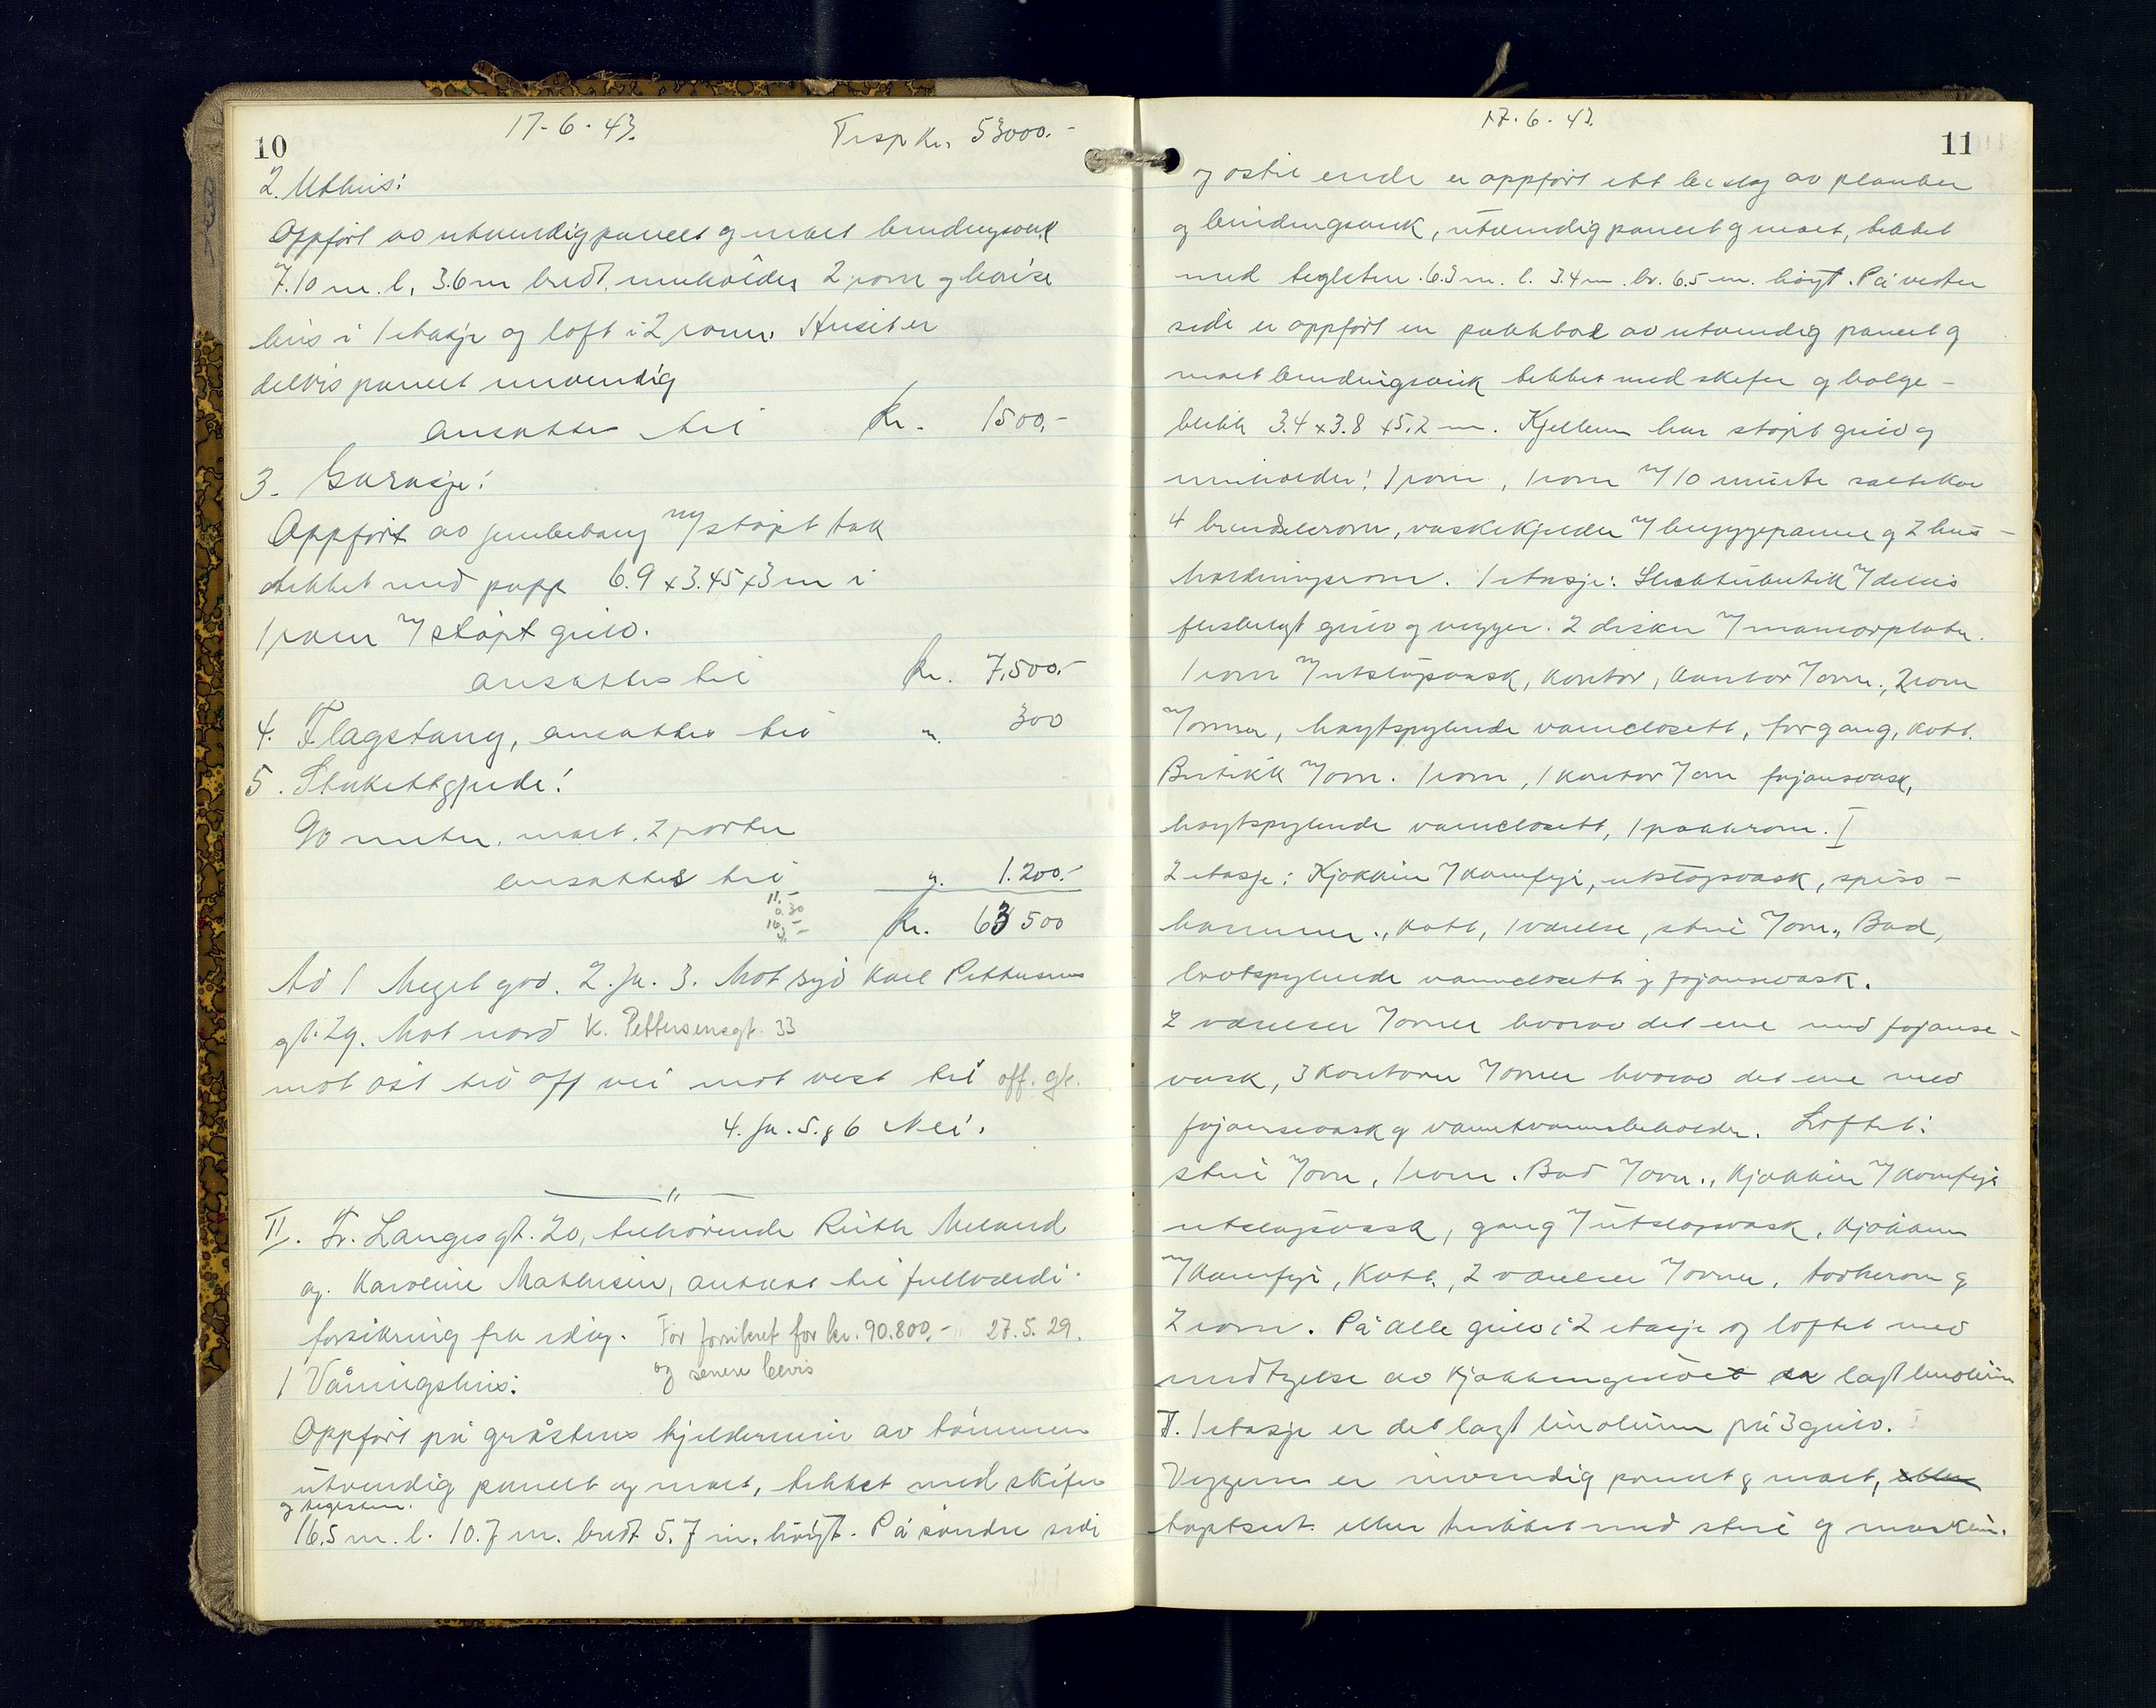 10
17-6-43.
Trsp Kr. 53000.-
2. Uthus:
Oppført av utvendig panelt og malt bindingsverk
7.10 m. l. 3.6 m bredt. inneholder 2 rom og
hus i 1 etasje og loft i 2 rom. Huset er
delvis panelt innvendig
ansattes til Kr. 1500.-
3. Garasje:
Oppført av jernbetong m/ støpt tak
tekket med papp 6.9 x 3.45 x 3 m i
1 rom m/ støpt gulv.
ansattes til Kr. 7.500.-
4. Flagstang, ansattes til ". 300
5. Stakettgjerde:
90 meter, malt. 2 porter
ansattes til ". 1.200.-
Kr. 63 500
Ad 1 Meget god. 2. Ja. 3. Mot syd Karl Pettersens
gt. 29. Mot nord K. Pettersensgt. 33
mot øst til off vei mot vest til off. gt.
4. Ja. 5. & 6 Nei.
II. Fr. Langes gt. 20, tilhørende Ruth Meland
og Karoline Mathisen, antatt til fullverdi-
forsikring fra idag. Før forsikret for kr. 90.800.- 27.5.29.
og senere bevis
1 Våningshus:
Oppført på gråstens kjeldermur av tømmer
utvendig panelt og malt, tekket med skifer
og teglsten.
16.5 m. l. 10.7 m. bredt 5.7 m. høigt. På søndre side
17.6.43.
11
og østre ende er oppført ett tilslag av planker
og bindingsverk, utvendig panelt og malt, tekket
med teglsten. 6.3 m. l. 3.4 m. br. 6.5 m. høigt. På vestre
side er oppført en pakkbod av utvendig panelt og
malt bindingsverk tekket med skifer og bølge-
blikk 3.4 x 3.8 x 5.2 m. Kjelleren har støpt gulv og
inneholder: 1 rom, 1 rom m/ 10 murte saltekar
4 brendselsrom, vaskekjeller m/ bryggepanne og 2 hus-
holdningsrom. 1 etasje: Slakterbutikk m/ delvis
flisbelagt gulv og vegger. 2 disker m/ marmorplater.
1 rom m/ utslagsvask, kontor, kontor m/ ovn., 2 rom
m/ ovner, høytspylende vannclosett, forgang, kott.
Butikk m/ ovn. 1 rom, 1 kontor m/ ovn fajansevask,
høytspylende vannclosett, 1 pakkrom. I
2 etasje: Kjøkken m/ komfyr, utslagsvask, spise-
kammer., kott, 1 værelse, stue m/ ovn., Bad,
lavtspylende vannclosett og fajansevask.
2 værelser m/ ovner hvorav det ene med fajanse-
vask, 3 kontorer m/ ovner hvorav det ene med
fajansevask og varmtvannsbeholder. Loftet:
stue m/ ovn, 1 rom. Bad m/ ovn., kjøkken m/ komfyr
utslagsvask, gang m/ utslagsvask, kjøkken
m/ komfyr, Kott., 2 værelser m/ ovner, tørkerom og
2 rom. På alle gulv i 2 etasje og loftet med
undtagelse av kjøkkengulvet er lagt linoleum
I. 1 etasje er det lagt linoleum på 3 gulv.
Veggene er innvendig panelt & malt, eller
tapetsert eller trukket med strie og maskin.